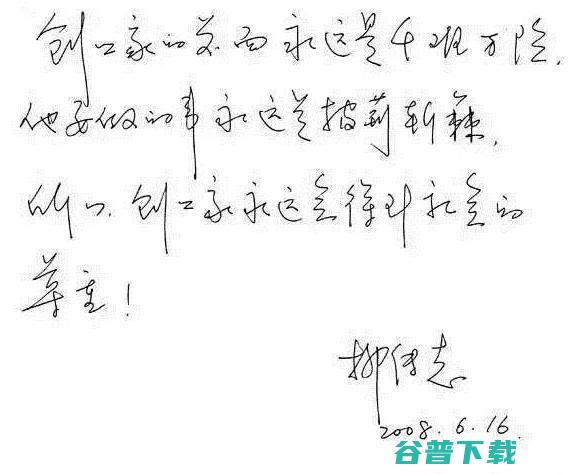 创业家的前面永远是千难万险，
他要做的事永远是披荆斩棘，
所以，创业家永远会得到社会的
尊重！
柳传志
2008.6.16.
谷普下载